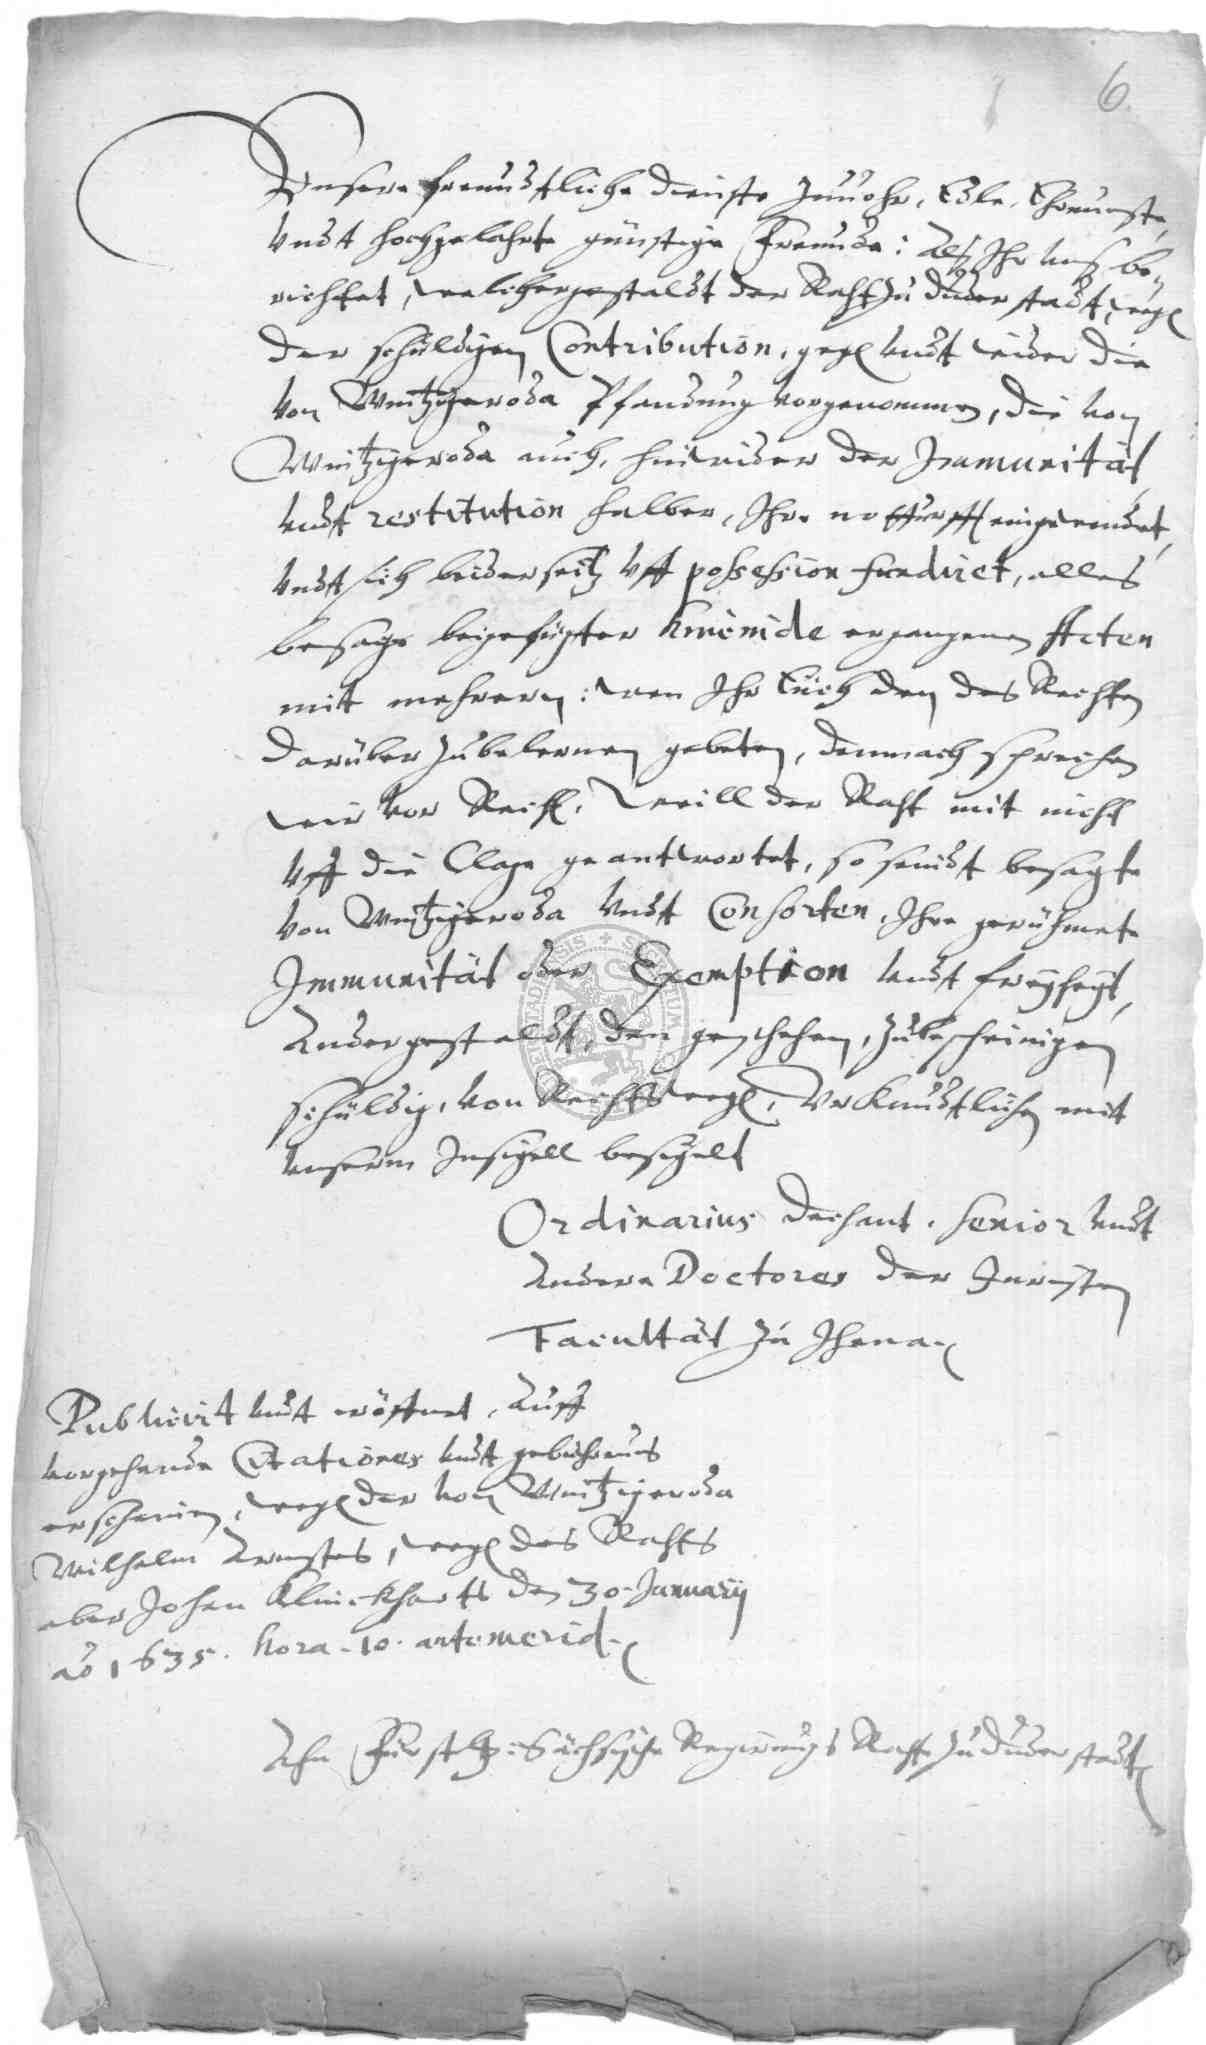 6
Unsere freundtliche dienste zuuohr, Edle, Ehrnueste,
undt hochgelahrte günstige Freunde: Alß Ihr unß be-
richtet, welchergestaldt der Raht zu Duderstadt, wegen
der schüldigen Contribution, gegen undt wider die
von Wintzigeroda Pfandung vorgenommen, die von
Wintzigeroda auch, hinwider der Immunität
undt restitution halber, Ihre notturfft eingewendet,
undt sich beiderseitz uff possession fundiret, alles
besage beigefügter ergangenen Acten
mit mehrern: wen Ihr Euch den des Rechten
darüber zubelernen gebeten, demnach sprechen
wir vor Recht, Weill der Raht mit nicht
uff die Clage geantwortet, so seindt besagte
von Wintzigeroda undt Consorten, Ihre gerühmete
Immunität oder Exemption undt freyheyt,
Andergestaldt, den geschehen, zubescheinigen
schüldig, von Rechts wegen, Uhrkundtlichen mit
unserm Insigell besigelt
Ordinarius Dechant, Senior undt
andere Doctores der Juristen
Facultät zu Jhena
Publicirt undt eröffnet, Auff
vorgehende Citationes undt gebührendes
erscheinen, wegen der von Wintzigeroda
Wilhelm Arnstes, wegen des Rahts
aber Johan Klinckharts den 30. January
ao 1635. hora. 10. antemerid.
Ahn Fürstl: Sächsische Regierungs Räthe zu Duderstadt